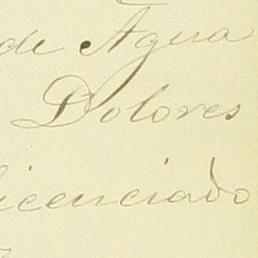 de Agua
Dolores
licenciado